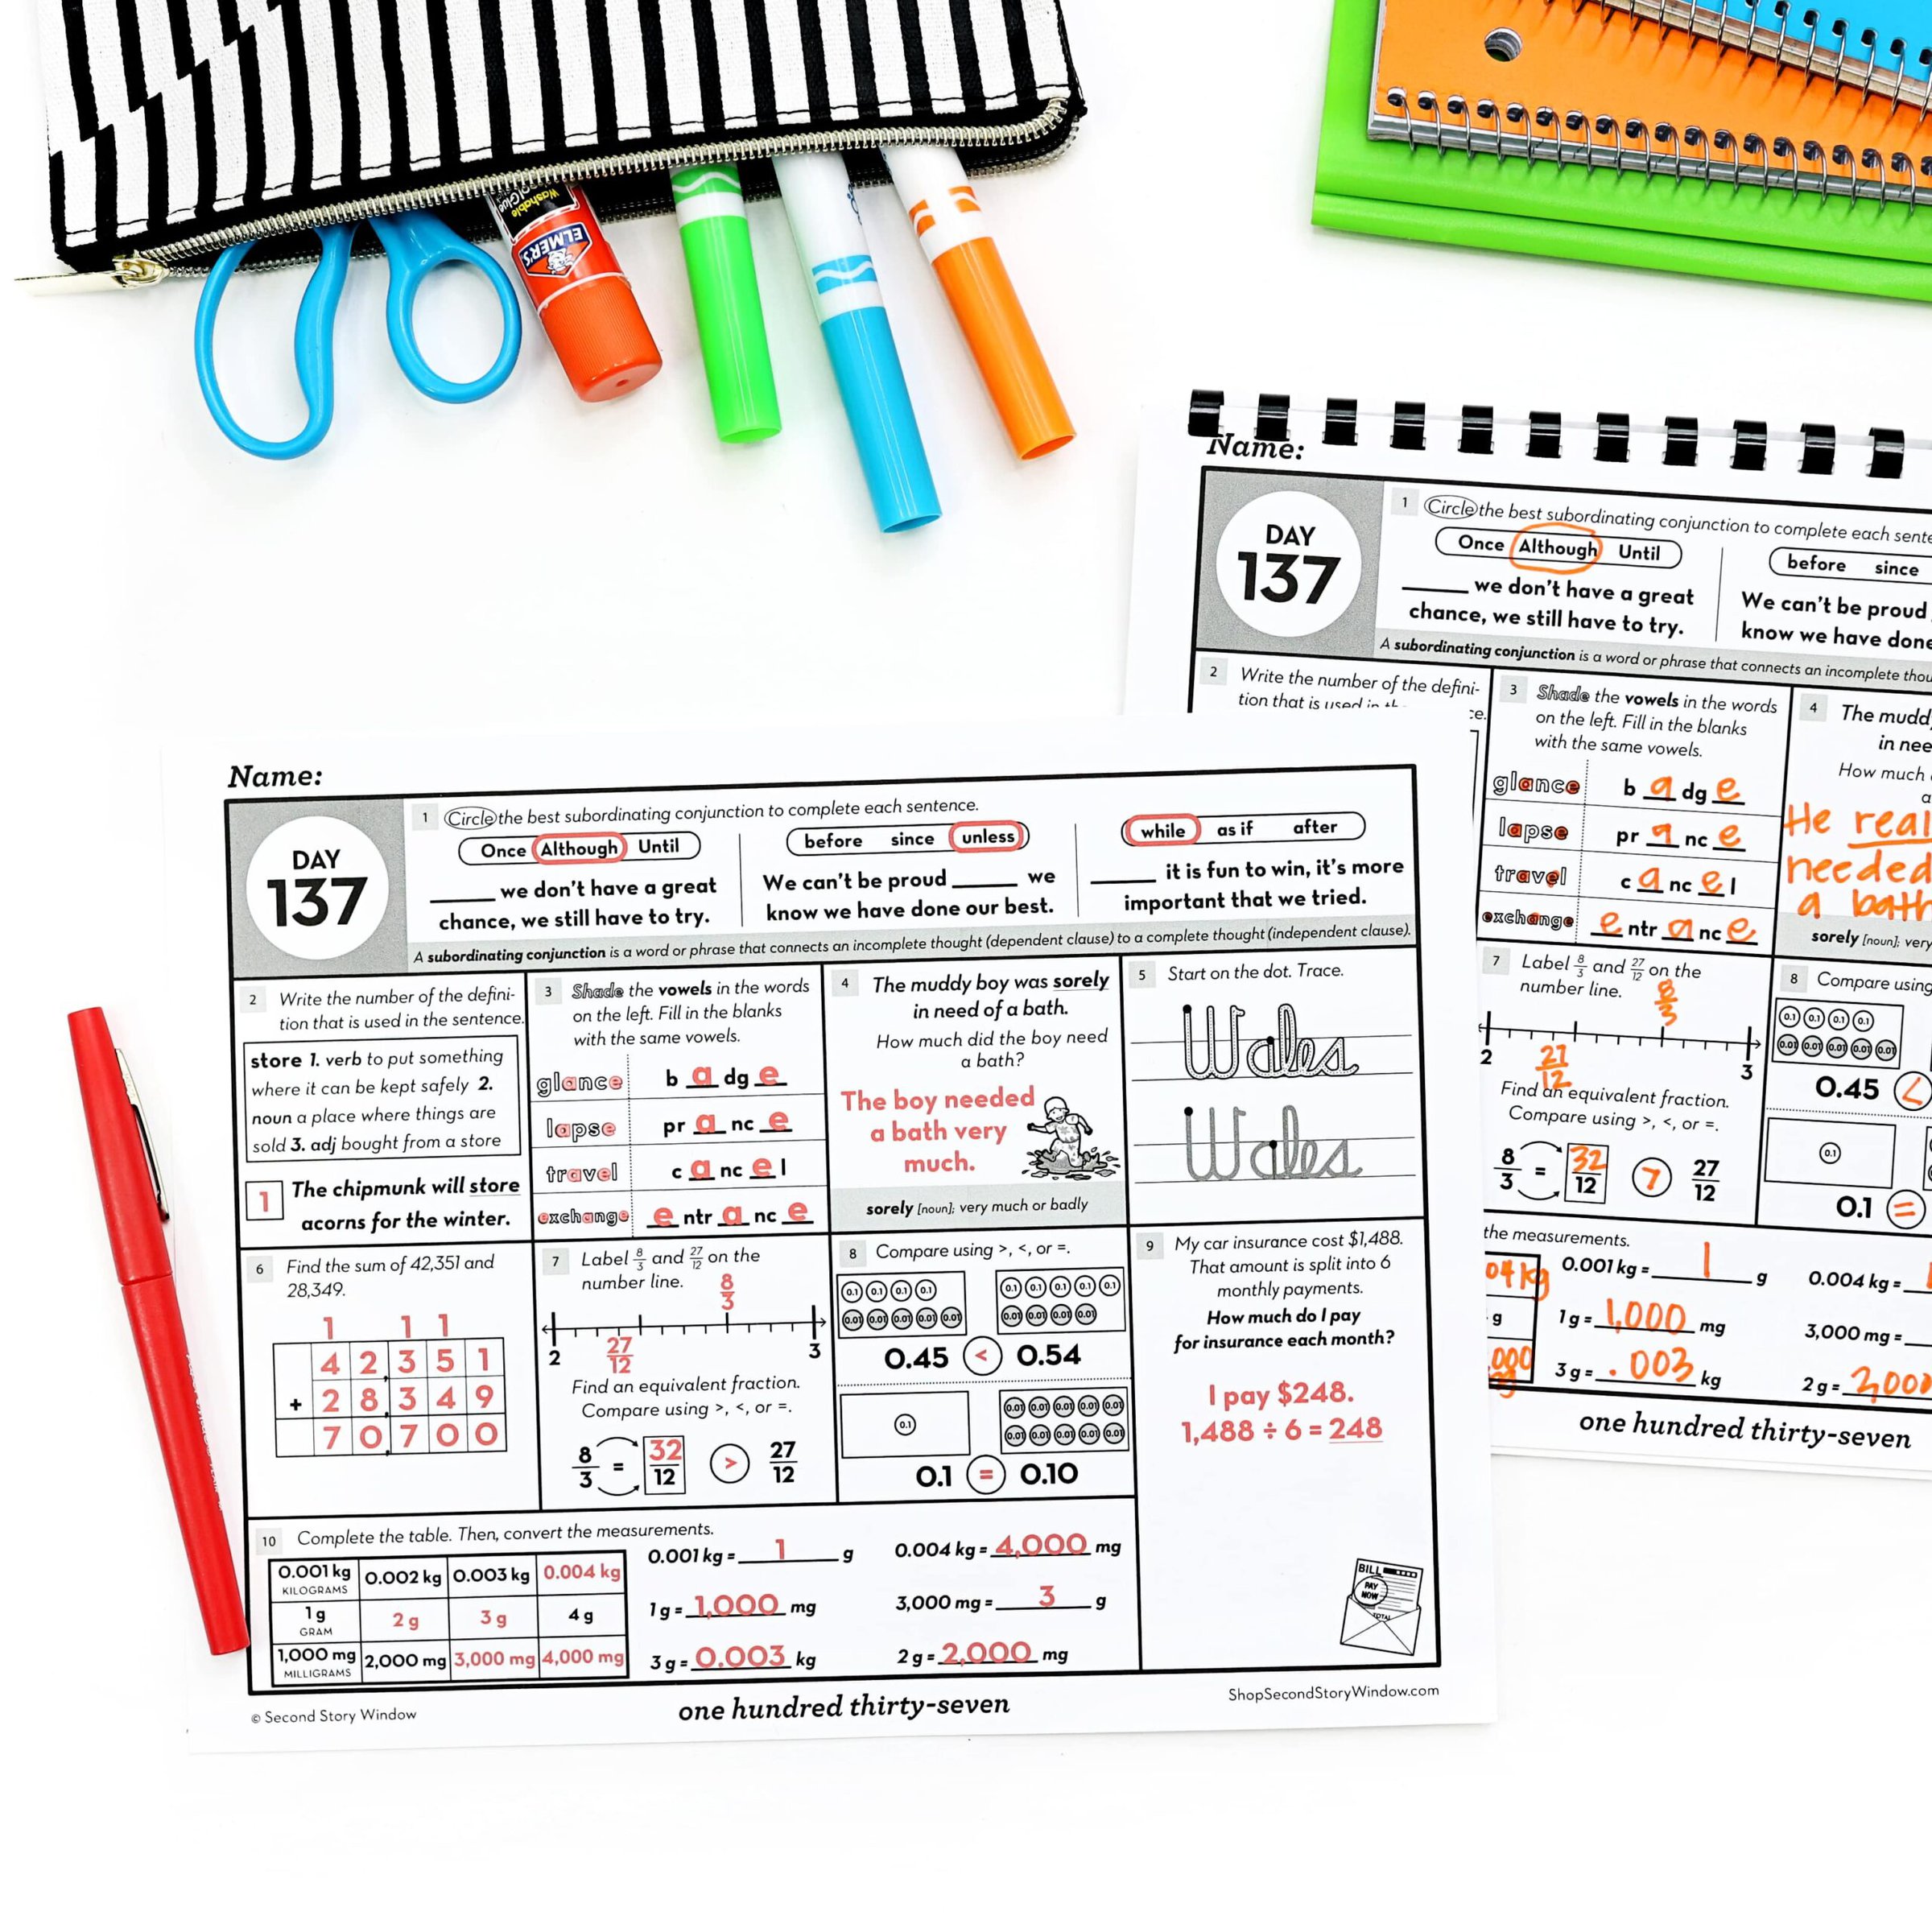 Washable
Glue
ELMER'S
Name:
DAY
137
1 Circle the best subordinating conjunction to complete each sentence.
Once Although Until
____ we don't have a great
chance, we still have to try.
before since unless
We can't be proud ____ we
know we have done our best.
while as if after
____ it is fun to win, it's more
important that we tried.
A subordinating conjunction is a word or phrase that connects an incomplete thought (dependent clause) to a complete thought (independent clause).
2 Write the number of the defini-
tion that is used in the sentence.
store 1. verb to put something
where it can be kept safely 2.
noun a place where things are
sold 3. adj bought from a store
1 The chipmunk will store
acorns for the winter.
3 Shade the vowels in the words
on the left. Fill in the blanks
with the same vowels.
glance b a dg e
lapse pr a nc e
travel c a nc e l
exchange e ntr a nc e
4 The muddy boy was sorely
in need of a bath.
How much did the boy need
a bath?
The boy needed
a bath very
much.
sorely [noun]; very much or badly
5 Start on the dot. Trace.
Wales
Wales
6 Find the sum of 42,351 and
28,349.
1 1 1
42,351
+ 28,349
70,700
7 Label 8/3 and 27/12 on the
number line.
8/3
2 3
27/12
Find an equivalent fraction.
Compare using >, <, or =.
8/3 = 32/12 > 27/12
8 Compare using >, <, or =.
0.1 0.1 0.1 0.1 0.1 0.1 0.1 0.1 0.1
0.01 0.01 0.01 0.01 0.01 0.01 0.01 0.01 0.01
0.45 < 0.54
0.1 0.01 0.01 0.01 0.01 0.01
0.01 0.01 0.01 0.01 0.01
0.1 = 0.10
9 My car insurance cost $1,488.
That amount is split into 6
monthly payments.
How much do I pay
for insurance each month?
I pay $248.
1,488 ÷ 6 = 248
BILL
PAY
NOW
TOTAL
10 Complete the table. Then, convert the measurements.
0.001 kg 0.002 kg 0.003 kg 0.004 kg
KILOGRAMS
1 g 2 g 3 g 4 g
GRAM
1,000 mg 2,000 mg 3,000 mg 4,000 mg
MILLIGRAMS
0.001 kg = 1 g
1 g = 1,000 mg
3 g = 0.003 kg
0.004 kg = 4,000 mg
3,000 mg = 3 g
2 g = 2,000 mg
© Second Story Window
one hundred thirty-seven
ShopSecondStoryWindow.com
Name:
DAY
137
1 Circle the best subordinating conjunction to complete each
Once Although Until
____ we don't have a great
chance, we still have to try.
before since
We can't be proud
know we have done
A subordinating conjunction is a word or phrase that connects an incomplete
2 Write the number of the defini-
tion that is used in
3 Shade the vowels in the words
on the left. Fill in the blanks
with the same vowels.
glance b a dg e
lapse pr a nc e
travel c a nc e l
exchange e ntr a nc e
4 The
in
How much
He
needed
a bath
sorely [noun]; very
7 Label 8/3 and 27/12 on the
number line.
8/3
2 3
27/12
Find an equivalent fraction.
Compare using >, <, or =.
8/3 = 32/12 > 27/12
8 Compare using
0.1 0.1 0.1 0.1
0.01 0.01 0.01 0.01 0.01
0.45 <
0.1
0.1 =
the measurements.
04 kg
g
000
0.001 kg = 1 g
1 g = 1,000 mg
3 g = .003 kg
0.004 kg =
3,000 mg =
2 g = 2,000
one hundred thirty-seven